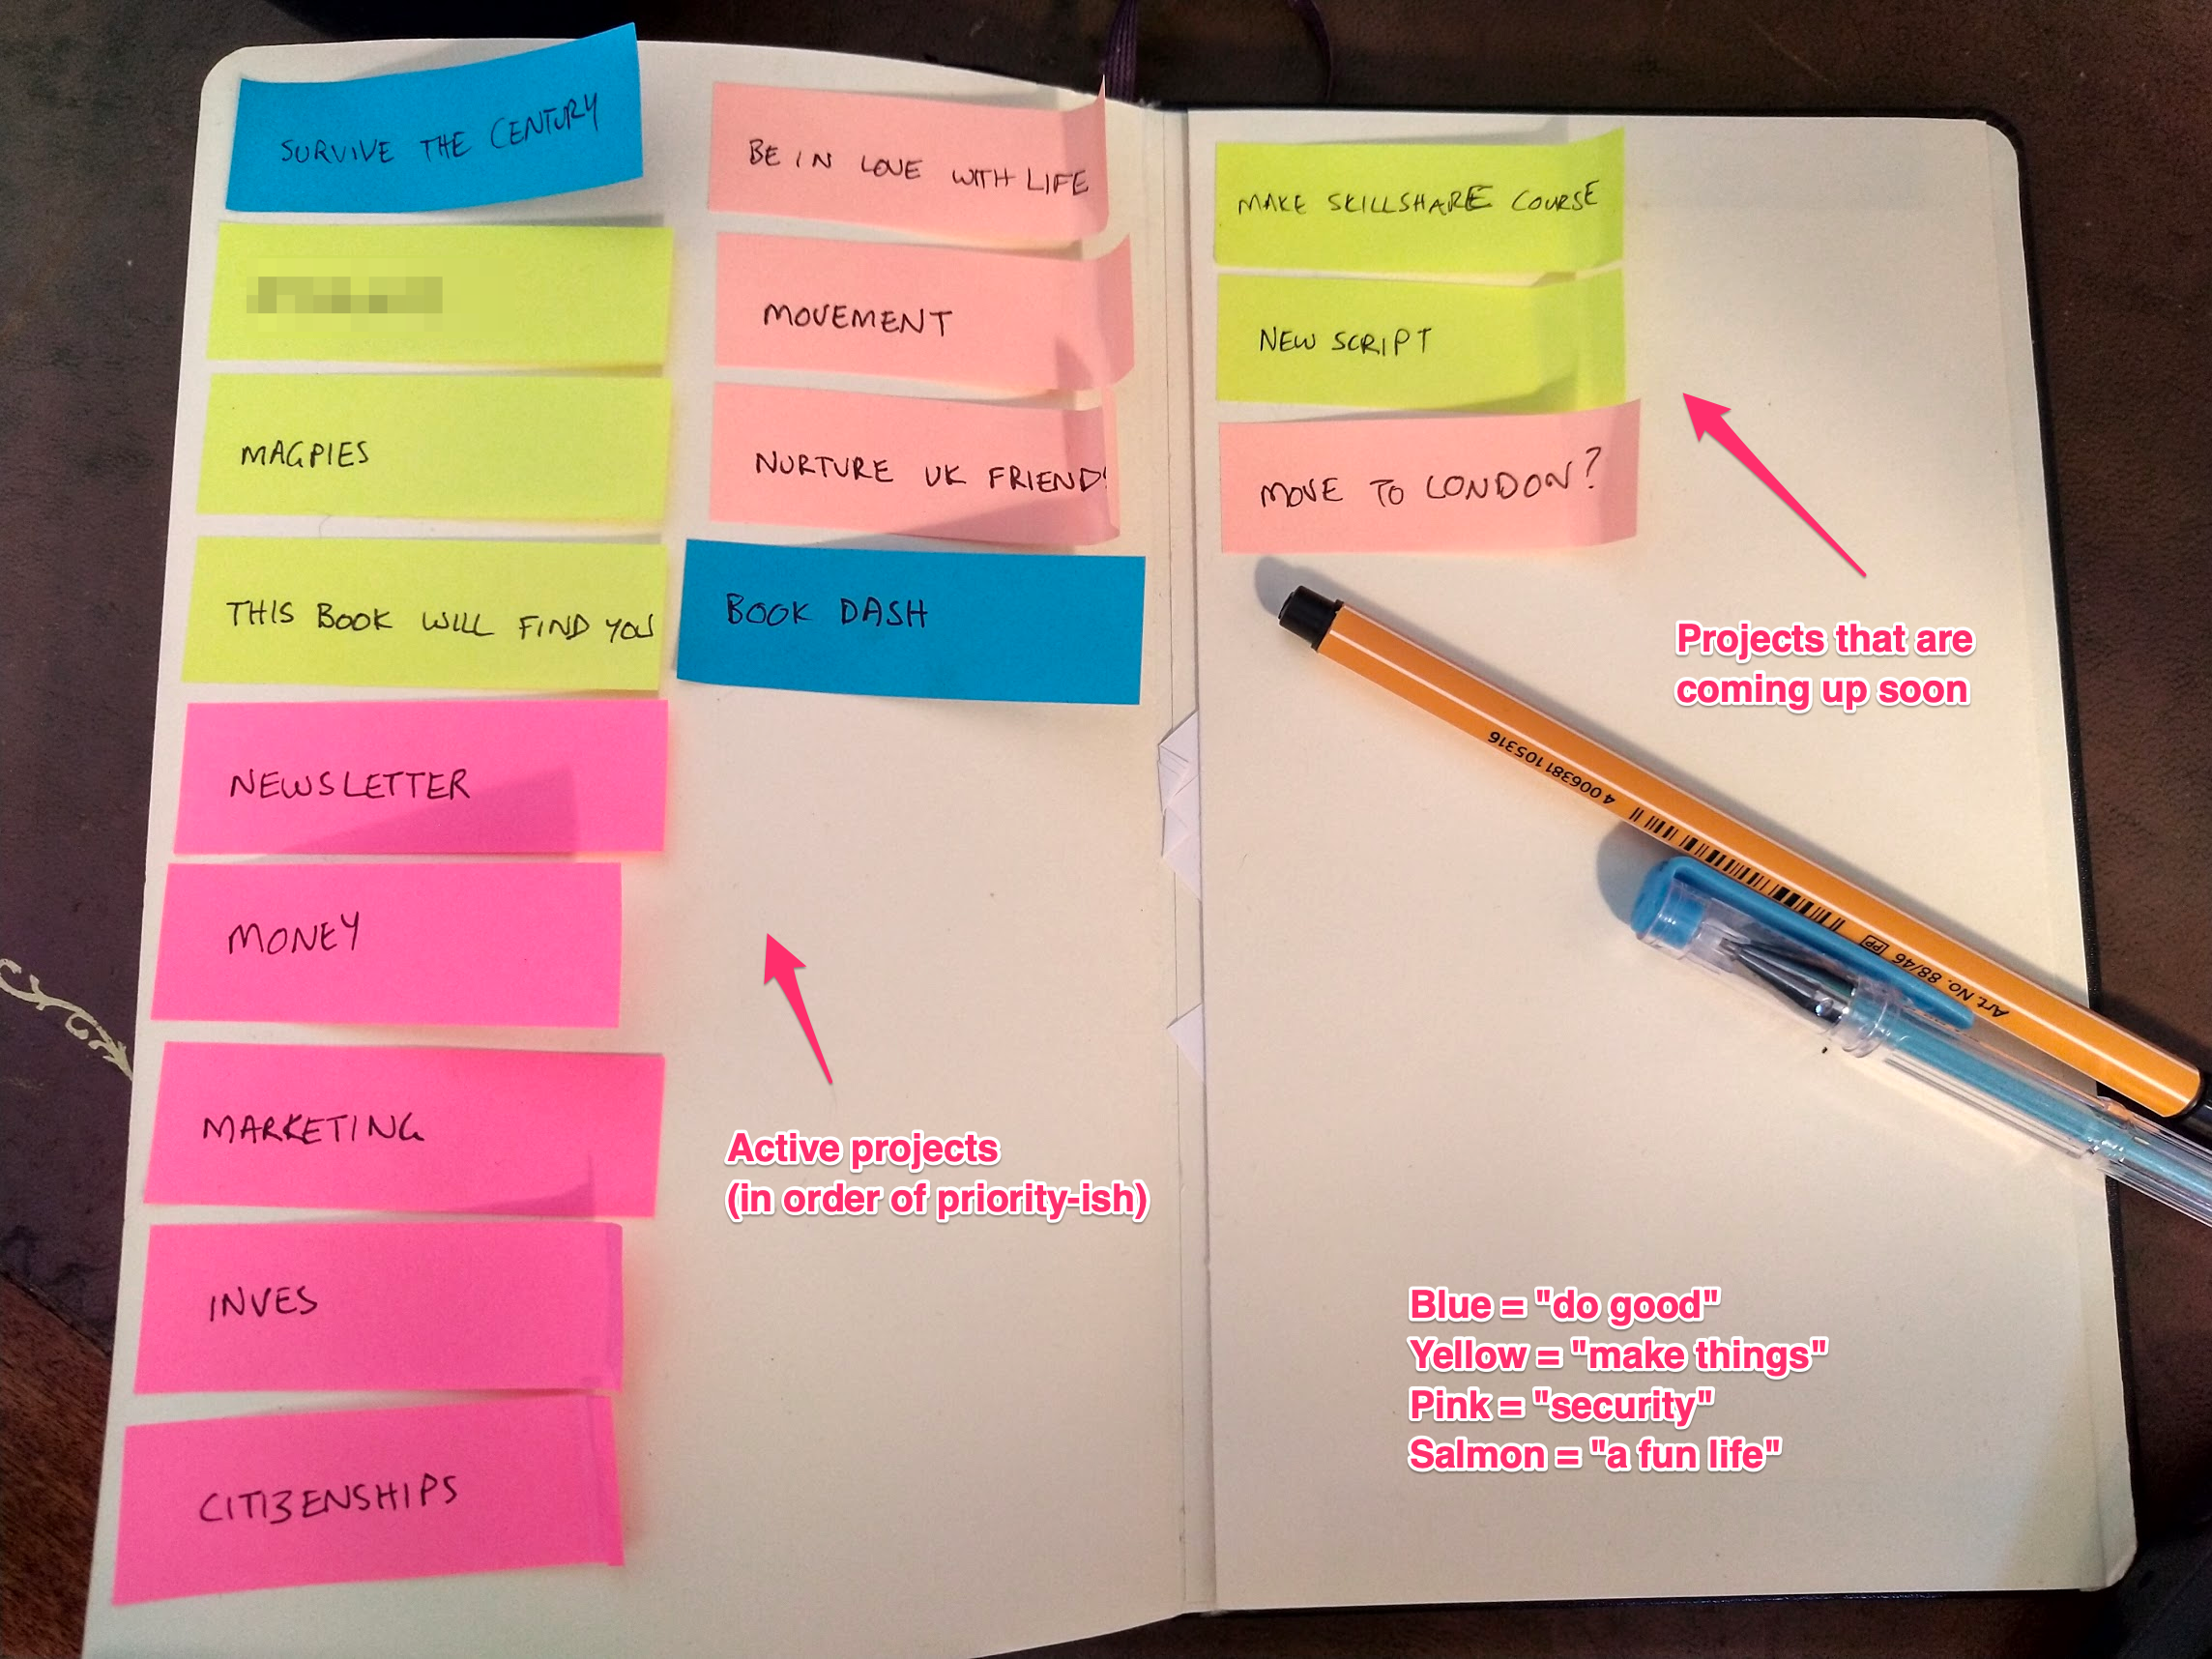 SURVIVE THE CENTURY
MAGPIES
THIS BOOK WILL FIND YOU
NEWSLETTER
MONEY
MARKETING
INVES
CITIZENSHIPS
BE IN LOVE WITH LIFE
MOVEMENT
NURTURE UK FRIENDS
BOOK DASH
Active projects
(in order of priority-ish)
MAKE SKILLSHARE COURSE
NEW SCRIPT
MOVE TO LONDON?
Projects that are
coming up soon
4 006381 105316
Art No. 88/46 PP
Blue = "do good"
Yellow = "make things"
Pink = "security"
Salmon = "a fun life"